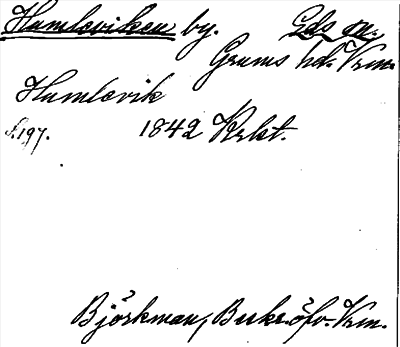 Humleviken by. Eds sn.
Grums hd. Vrm.
Humlevik
s. 197. 1842 Krkt.
Björkman, Beskr. öfv. Vrm.